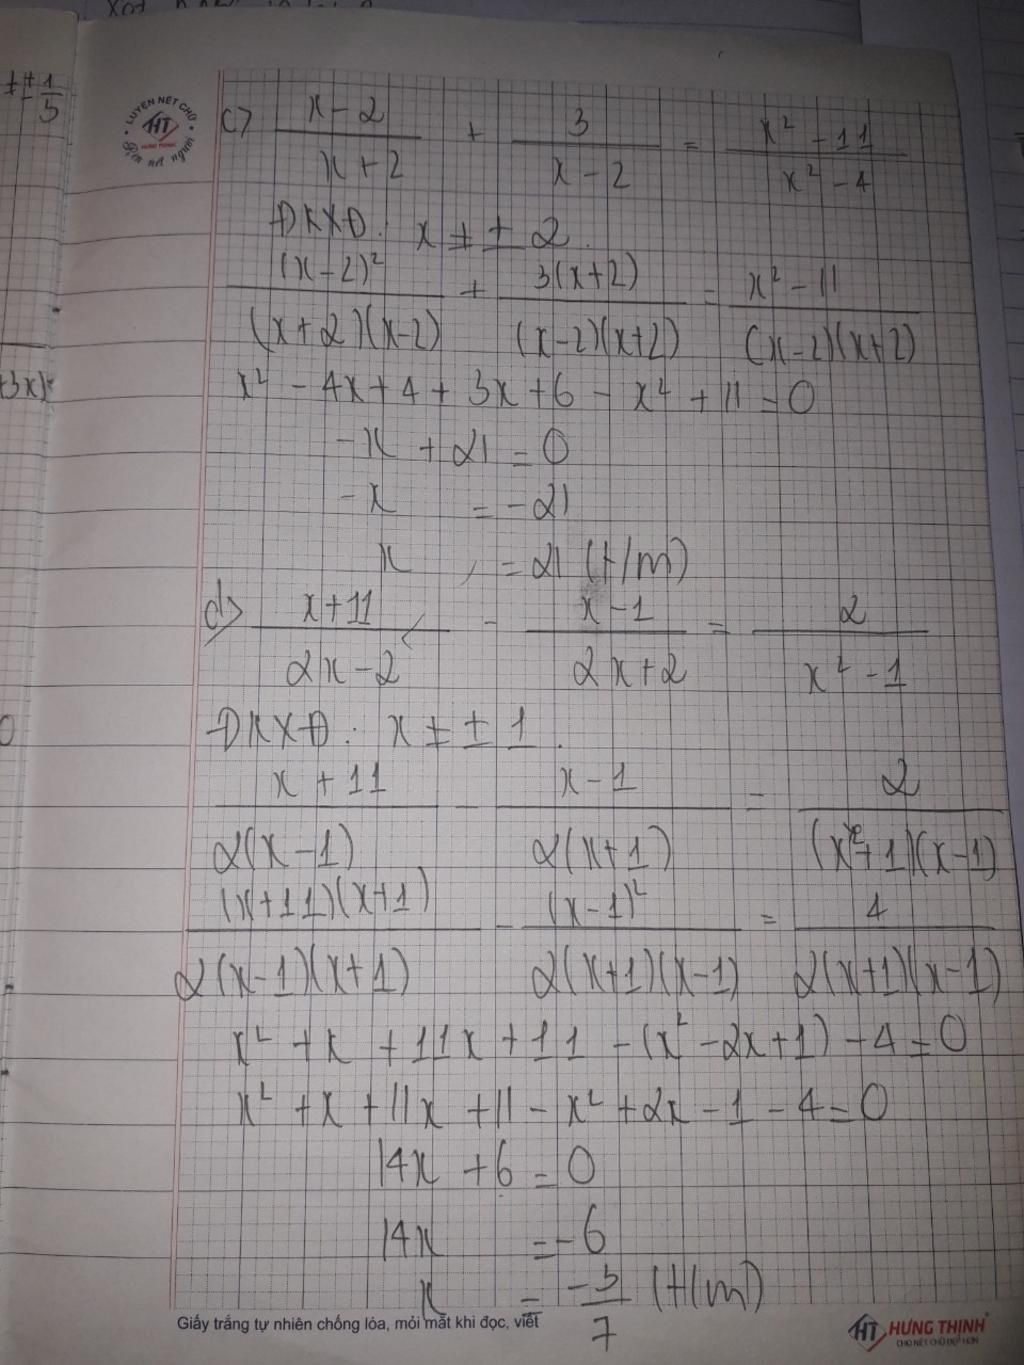 ± ± 1/5
LUYỆN NÉT CHỮ
HT
HƯNG THỊNH
Rèn nết người
c) (x-2)/(x+2) + 3/(x-2) = (x² - 11)/(x² - 4)
ĐKXĐ: x ≠ ± 2.
(x-2)²/((x+2)(x-2)) + 3(x+2)/((x-2)(x+2)) = (x² - 11)/((x-2)(x+2))
+3x)
x² - 4x + 4 + 3x + 6 - x² + 11 = 0
-x + 21 = 0
-x = -21
x = 21 (t/m)
d) (x+11)/(2x-2) - (x-1)/(2x+2) = 2/(x² - 1)
ĐKXĐ: x ≠ ± 1.
(x+11)/(2(x-1)) - (x-1)/(2(x+1)) = 2/((x+1)(x-1))
(x+11)(x+1)/(2(x-1)(x+1)) - (x-1)²/(2(x+1)(x-1)) = 4/(2(x+1)(x-1))
x² + x + 11x + 11 - (x² - 2x + 1) - 4 = 0
x² + x + 11x + 11 - x² + 2x - 1 - 4 = 0
14x + 6 = 0
14x = -6
x = -3/7 (t/m)
Giấy trắng tự nhiên chống lóa, mỏi mắt khi đọc, viết
HT HƯNG THỊNH
CHO NÉT CHỮ ĐẸP HƠN